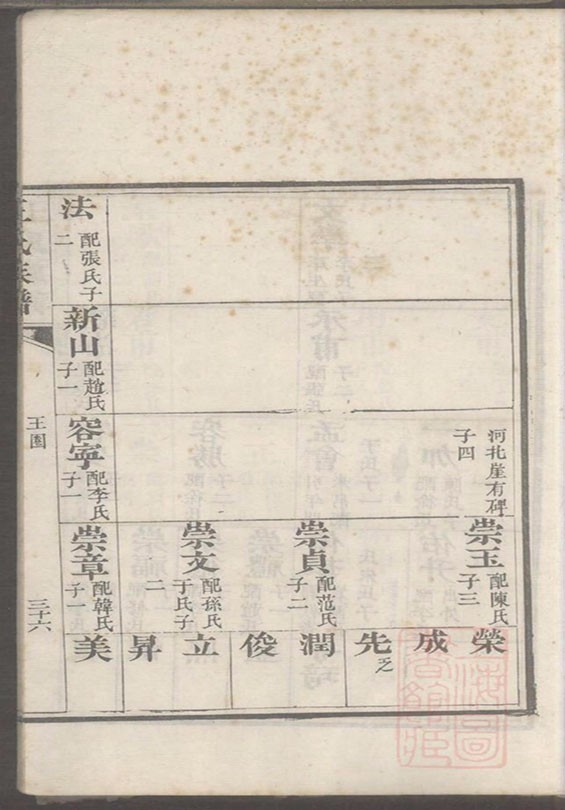 河北崖有碑
子四
崇玉
配陳氏
子三
崇貞
配范氏
子二
崇文
配孫氏
于氏子
二
榮
成
先乏
潤
俊
立
昇
法
配張氏子
二
新山
配趙氏
子一
容寜
配李氏
子一
崇章
配韓氏
子一
美
王氏族譜
王圈
三十六